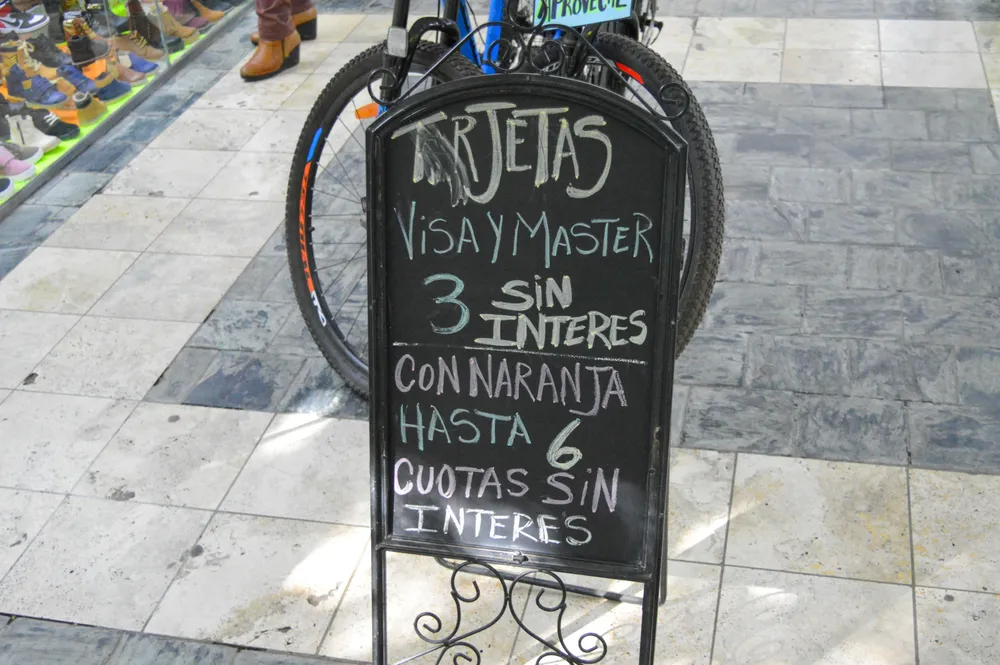 APROVECHE
TARJETAS
ViSA Y MASTER
3 SiN
INTERES
CON NARANJA
HASTA 6
CUOTAS SiN
INTERES